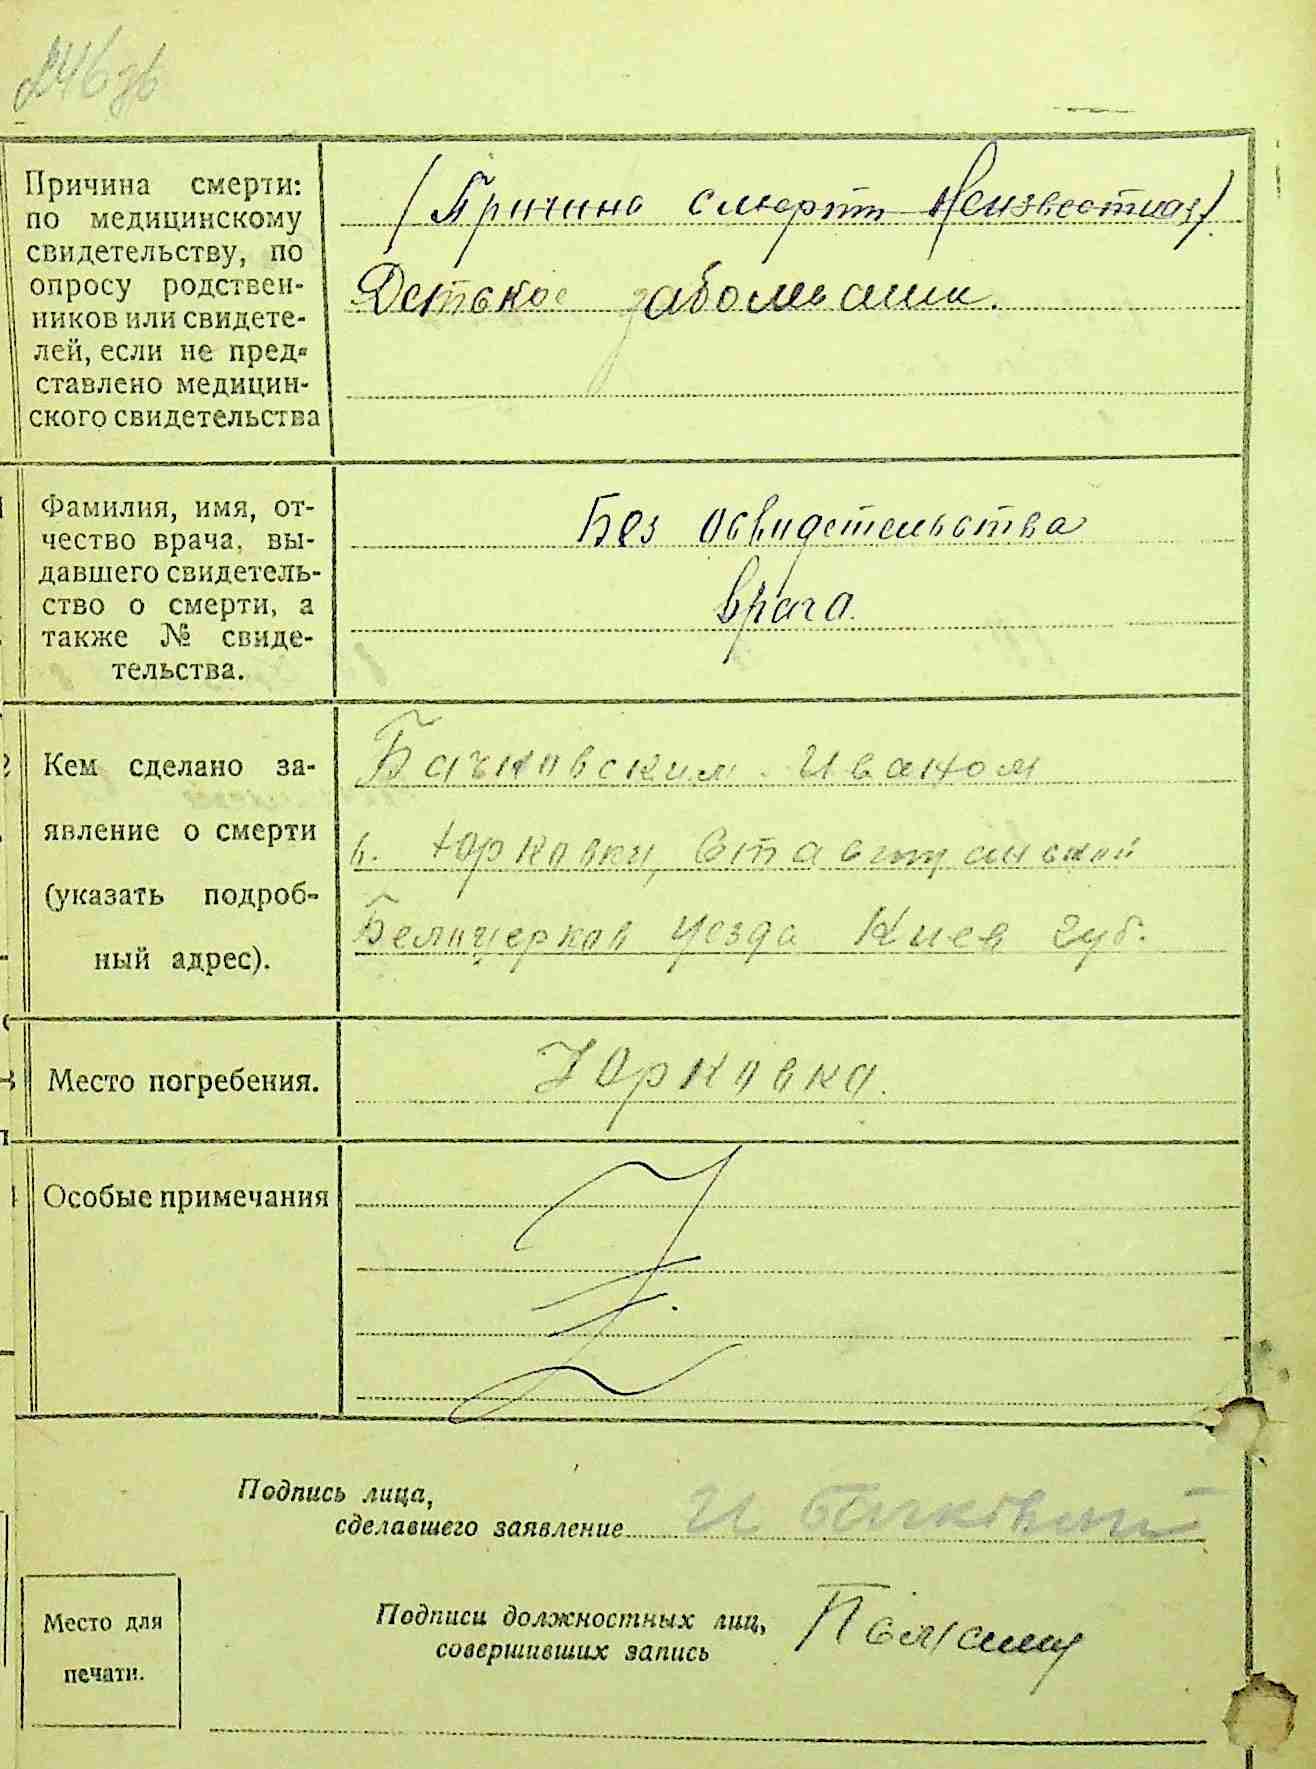 Причина смерти:
по медицинскому
свидетельству, по
опросу родствен-
ников или свидете-
лей, если не пред-
ставлено медицин-
ского свидетельства
(Причина смерти Неизвестная)
Детское заболевание.
Фамилия, имя, от-
чество врача, вы-
давшего свидетель-
ство о смерти, а
также № свиде-
тельства.
Без освидетельства
врача.
Кем сделано за-
явление о смерти
(указать подроб-
ный адрес).
Бачковским Иваном
с. Юрковки, Ставищанской
Белоцерков уезда Киев губ.
Место погребения.
Юрковка.
Особые примечания
Подпись лица,
сделавшего заявление
И Бачковский
Подписи должностных лиц,
совершивших запись
Место для
печати.